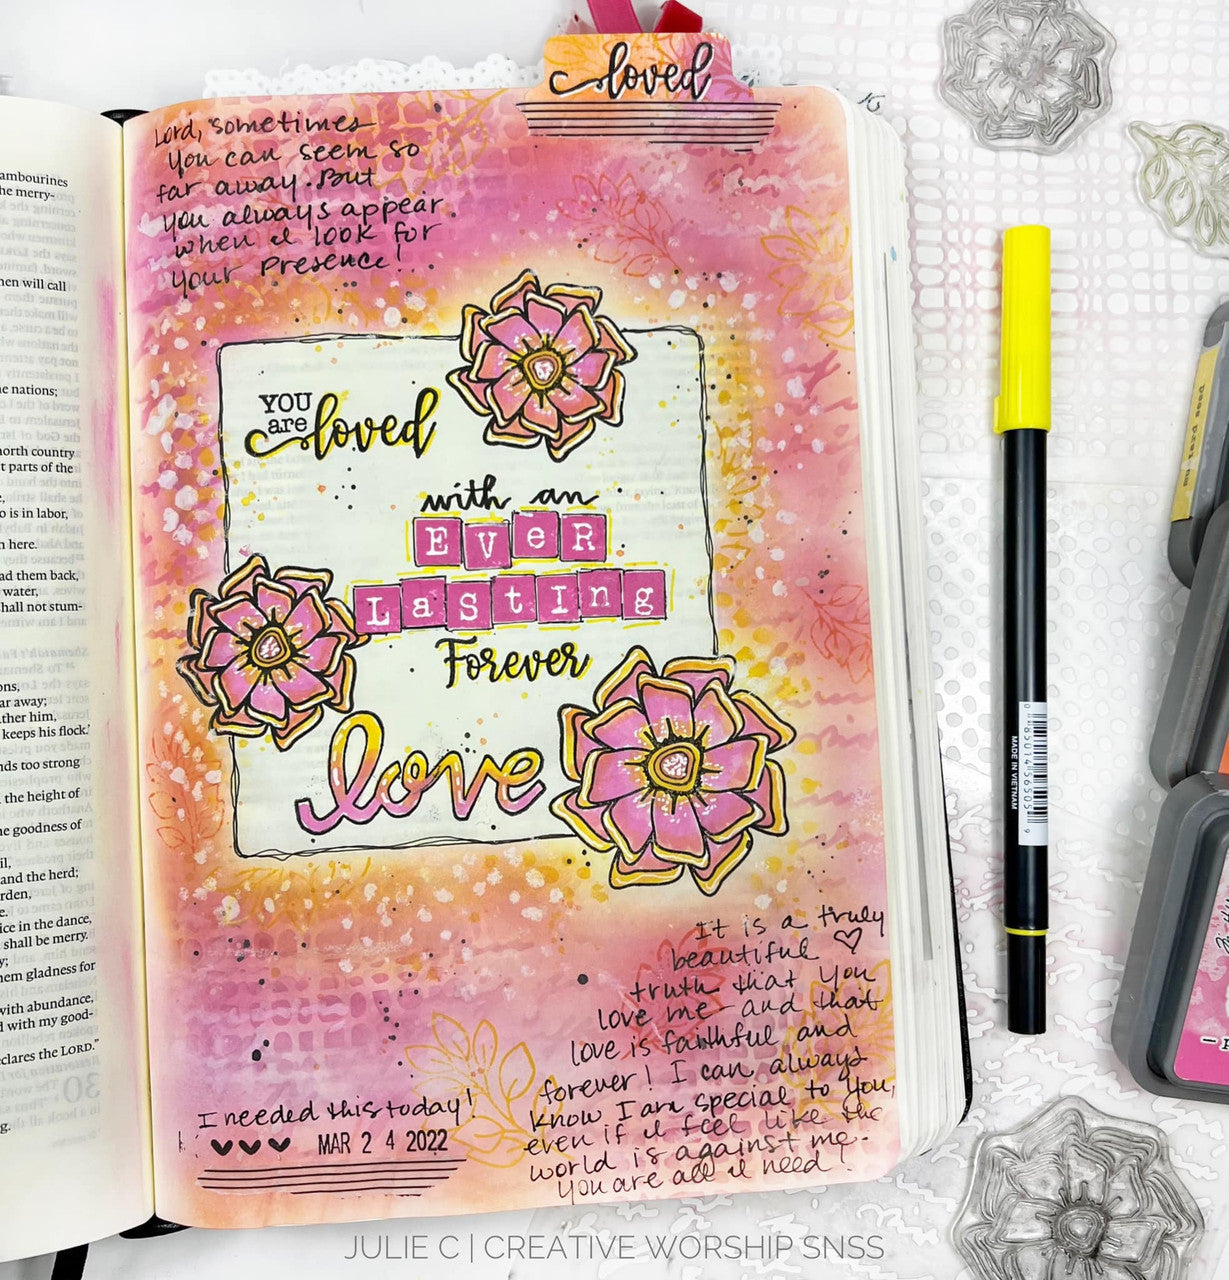 loved
Lord, sometimes
you can seem so
far away. But
you always appear
when I look for
your presence!
YOU
are loved
with an
EVER
Lasting
Forever
love
It is a truly
beautiful ♡
truth that you
love me - and that
love is faithful and
forever! I can always
know I am special to you,
even if I feel like the
world is against me.
You are all I need!
I needed this today!
♥♥♥ MAR 24 2022
ambourines
he merry-
en will call
e nations;
north country
t parts of the
o is in labor,
n here.
ad them back,
water,
hall not stum-
ons,
ar away;
ther him,
keeps his flock.'
nds too strong
the height of
e goodness of
il,
and the herd;
rden,
e.
ice in the dance,
shall be merry.
y;
em gladness for
with abundance,
d with my good-
eclares the LORD."
g.
MADE IN VIETNAM
JULIE C | CREATIVE WORSHIP SNSS